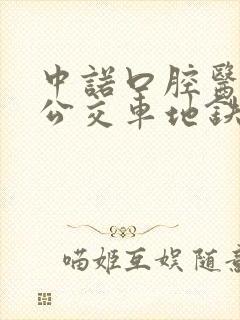 中諾口腔醫
公交車地鉄
喵姬互娱随意